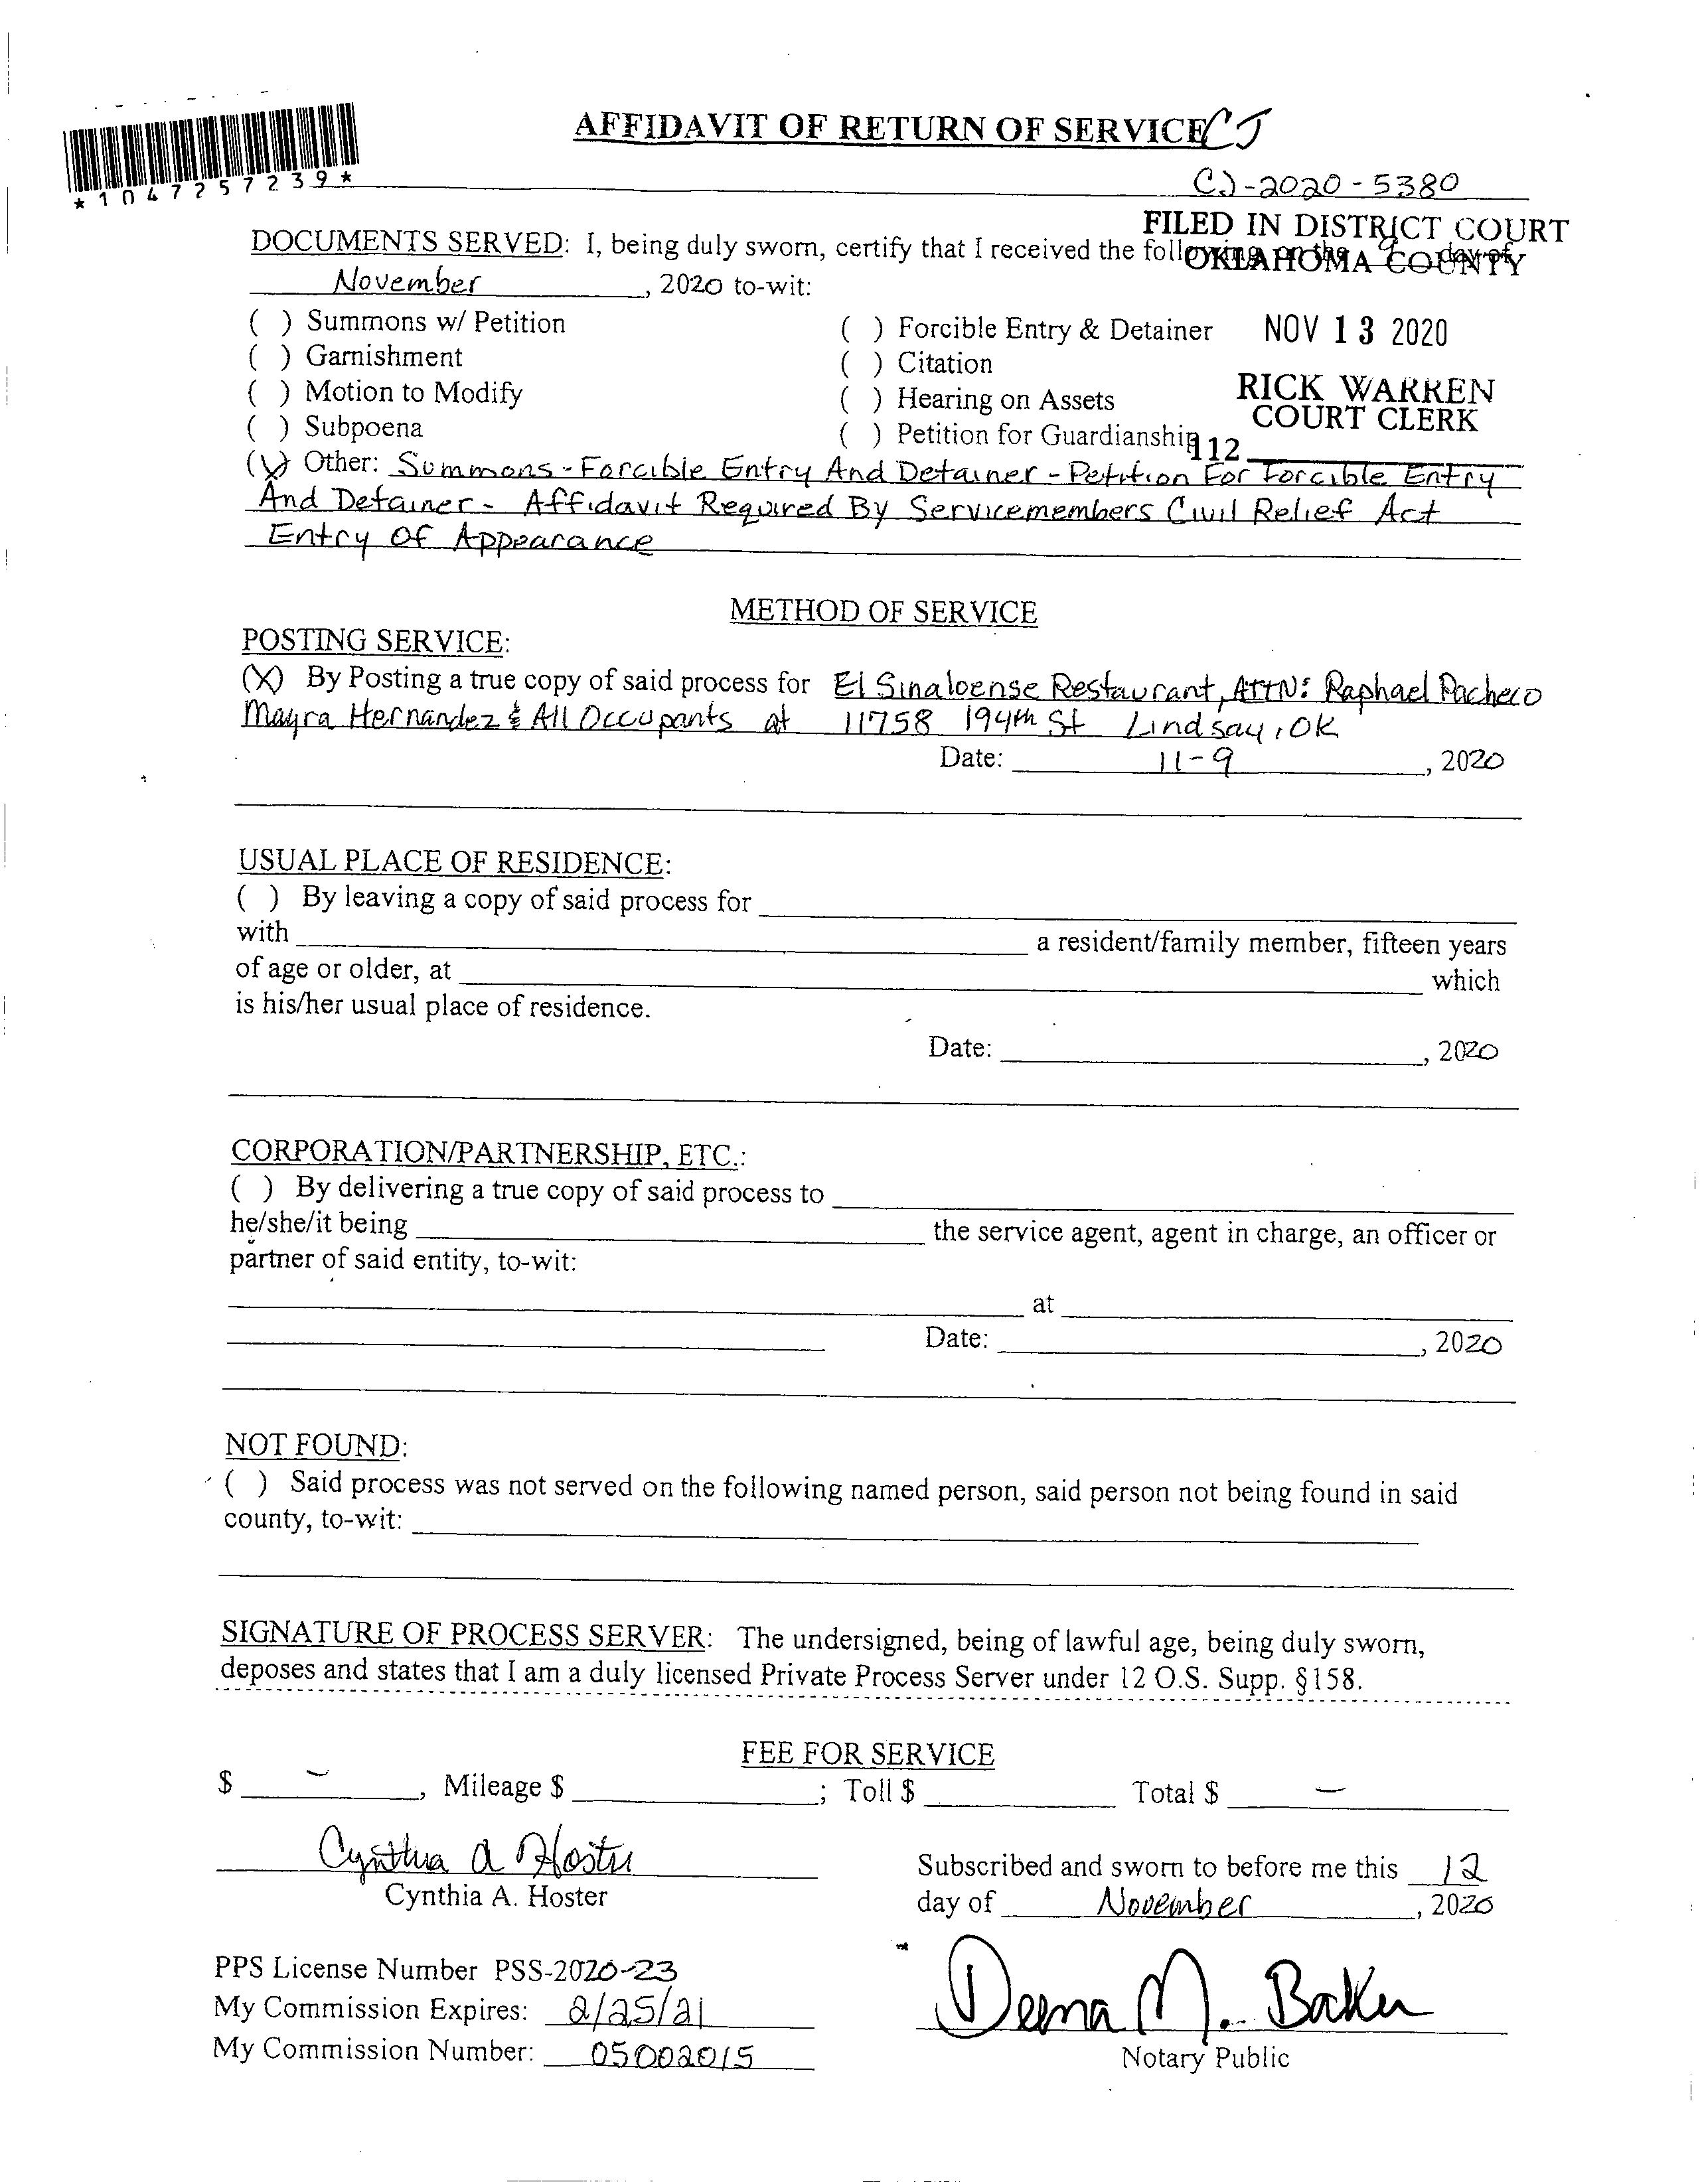 AFFIDAVIT OF RETURN OF SERVICE CJ
*1047257239*
CJ-2020-5380
FILED IN DISTRICT COURT
OKLAHOMA COUNTY
DOCUMENTS SERVED: I, being duly sworn, certify that I received the following on the 9 day of
November, 2020 to-wit:
( ) Summons w/ Petition
( ) Forcible Entry & Detainer
NOV 13 2020
( ) Garnishment
( ) Citation
( ) Motion to Modify
( ) Hearing on Assets
RICK WARREN
COURT CLERK
( ) Subpoena
( ) Petition for Guardianship
112
(X) Other: Summons - Forcible Entry And Detainer - Petition For Forcible Entry
And Detainer - Affidavit Required By Servicemembers Civil Relief Act
Entry Of Appearance
METHOD OF SERVICE
POSTING SERVICE:
(X) By Posting a true copy of said process for El Sinaloense Restaurant, ATTN: Raphael Pacheco
Mayra Hernandez & All Occupants at 11758 194th St Lindsay, OK
Date: 11-9, 2020
USUAL PLACE OF RESIDENCE:
( ) By leaving a copy of said process for
with a resident/family member, fifteen years
of age or older, at which
is his/her usual place of residence.
Date: , 2020
CORPORATION/PARTNERSHIP, ETC.:
( ) By delivering a true copy of said process to
he/she/it being the service agent, agent in charge, an officer or
partner of said entity, to-wit:
at
Date: , 2020
NOT FOUND:
( ) Said process was not served on the following named person, said person not being found in said
county, to-wit:
SIGNATURE OF PROCESS SERVER: The undersigned, being of lawful age, being duly sworn,
deposes and states that I am a duly licensed Private Process Server under 12 O.S. Supp. §158.
FEE FOR SERVICE
$ - , Mileage $ ; Toll $ Total $ -
Cynthia A Hoster
Cynthia A. Hoster
Subscribed and sworn to before me this 12
day of November, 2020
PPS License Number PSS-2020-23
My Commission Expires: 2/25/21
My Commission Number: 05002015
Deena M. Baker
Notary Public